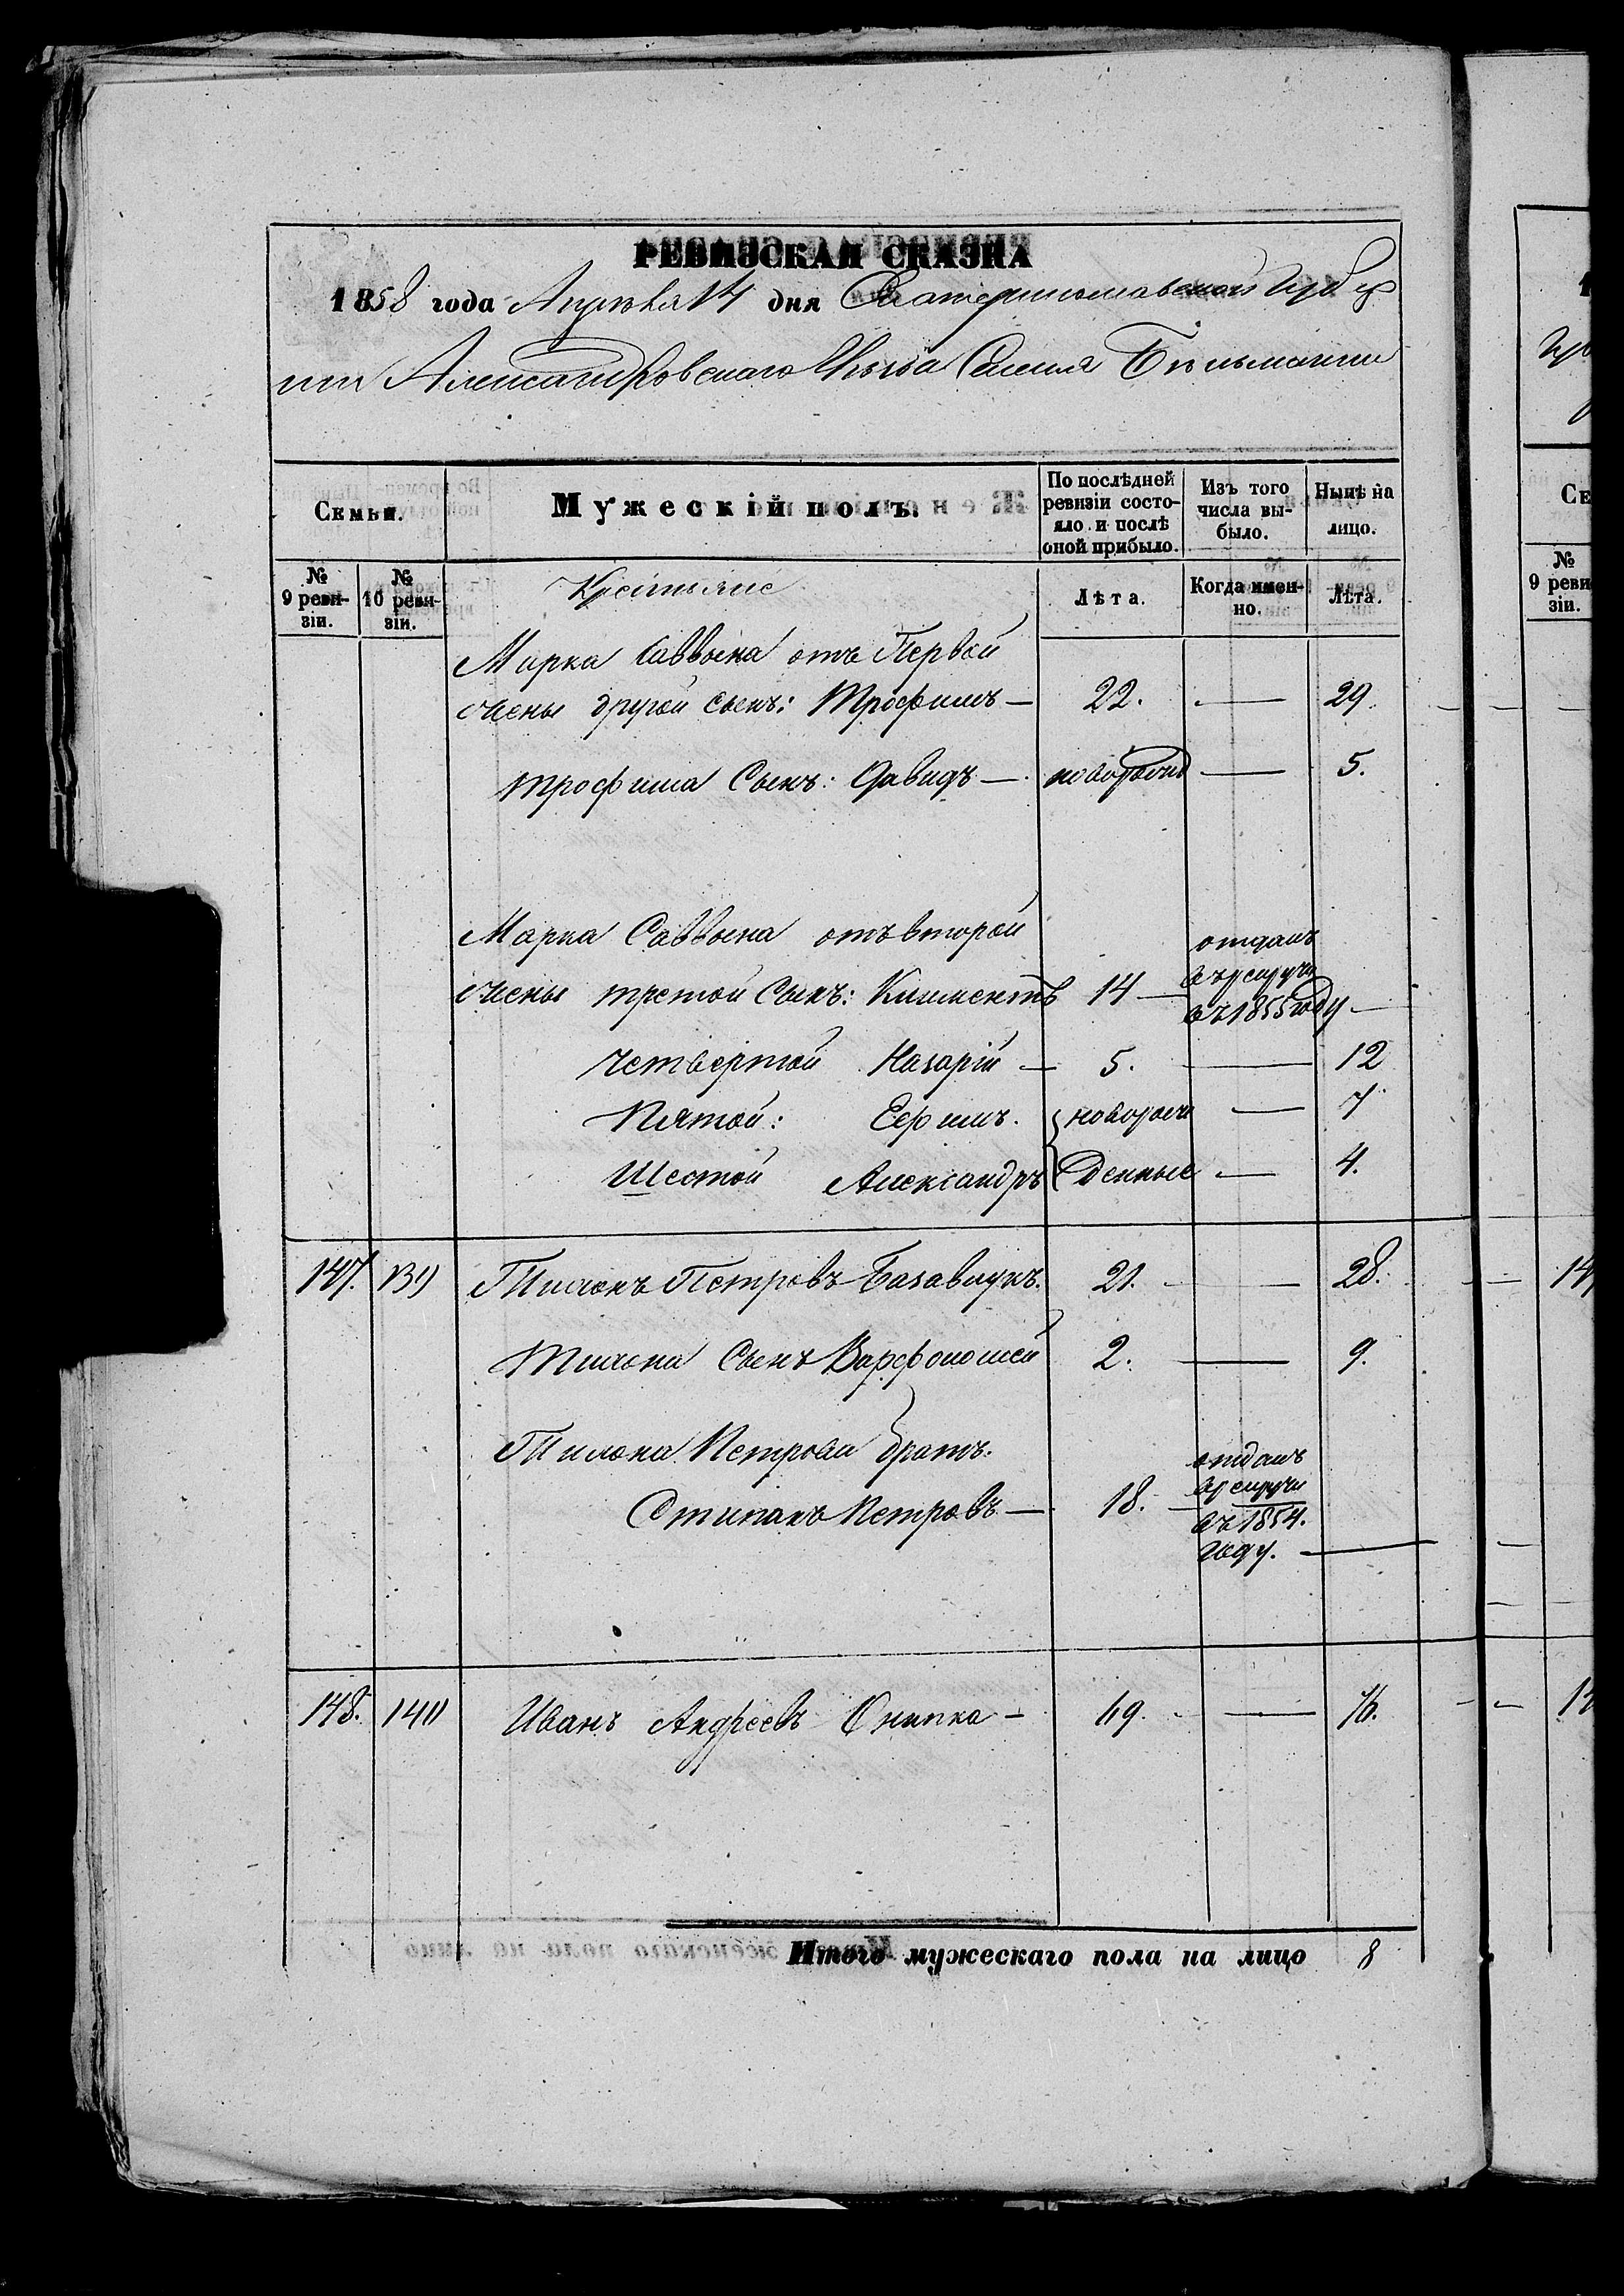 РЕВИЗСКАЯ СКАЗКА
1858 года Апреля 14 дня Екатеринославской Губер
нии Александровскаго Уезда Селенія Бельманки
Семьи.
Мужескій полъ.
По послѣдней ревизіи состо-
яло и послѣ оной прибыло.
Изъ того числа вы-
было.
Нынѣ на лицо.
№ 9 реви-
зіи.
№ 10 реви-
зіи.
Крестьяне
Лѣта.
Когда имен-
но.
Лѣта.
Марка Саввина отъ Первой
жены другой сынъ: Трофимъ — 22. — 29.
Трофима Сынъ: Давидъ — новорожд — 5.
Марка Саввина отъ второй
жены третой Сынъ: Климентъ 14 — отданъ
въ рекруты
въ 1855 году —
четвертой Назарій — 5. — 12
Пятой: Ефимъ. новорож — 7
Шестой Александръ денные — 4.
147. 139 Тихонъ Петровъ Базавлукъ. 21. — 28.
Тихона Сынъ Варфоломей 2. — 9.
Тихона Петрова братъ.
Степанъ Петровъ — 18. — отданъ
в рекруты
въ 1854.
году. —
148. 140 Иванъ Андреевъ Онипко — 69. — 76.
Итого мужескаго пола на лицо 8
№
9 реви
зіи.